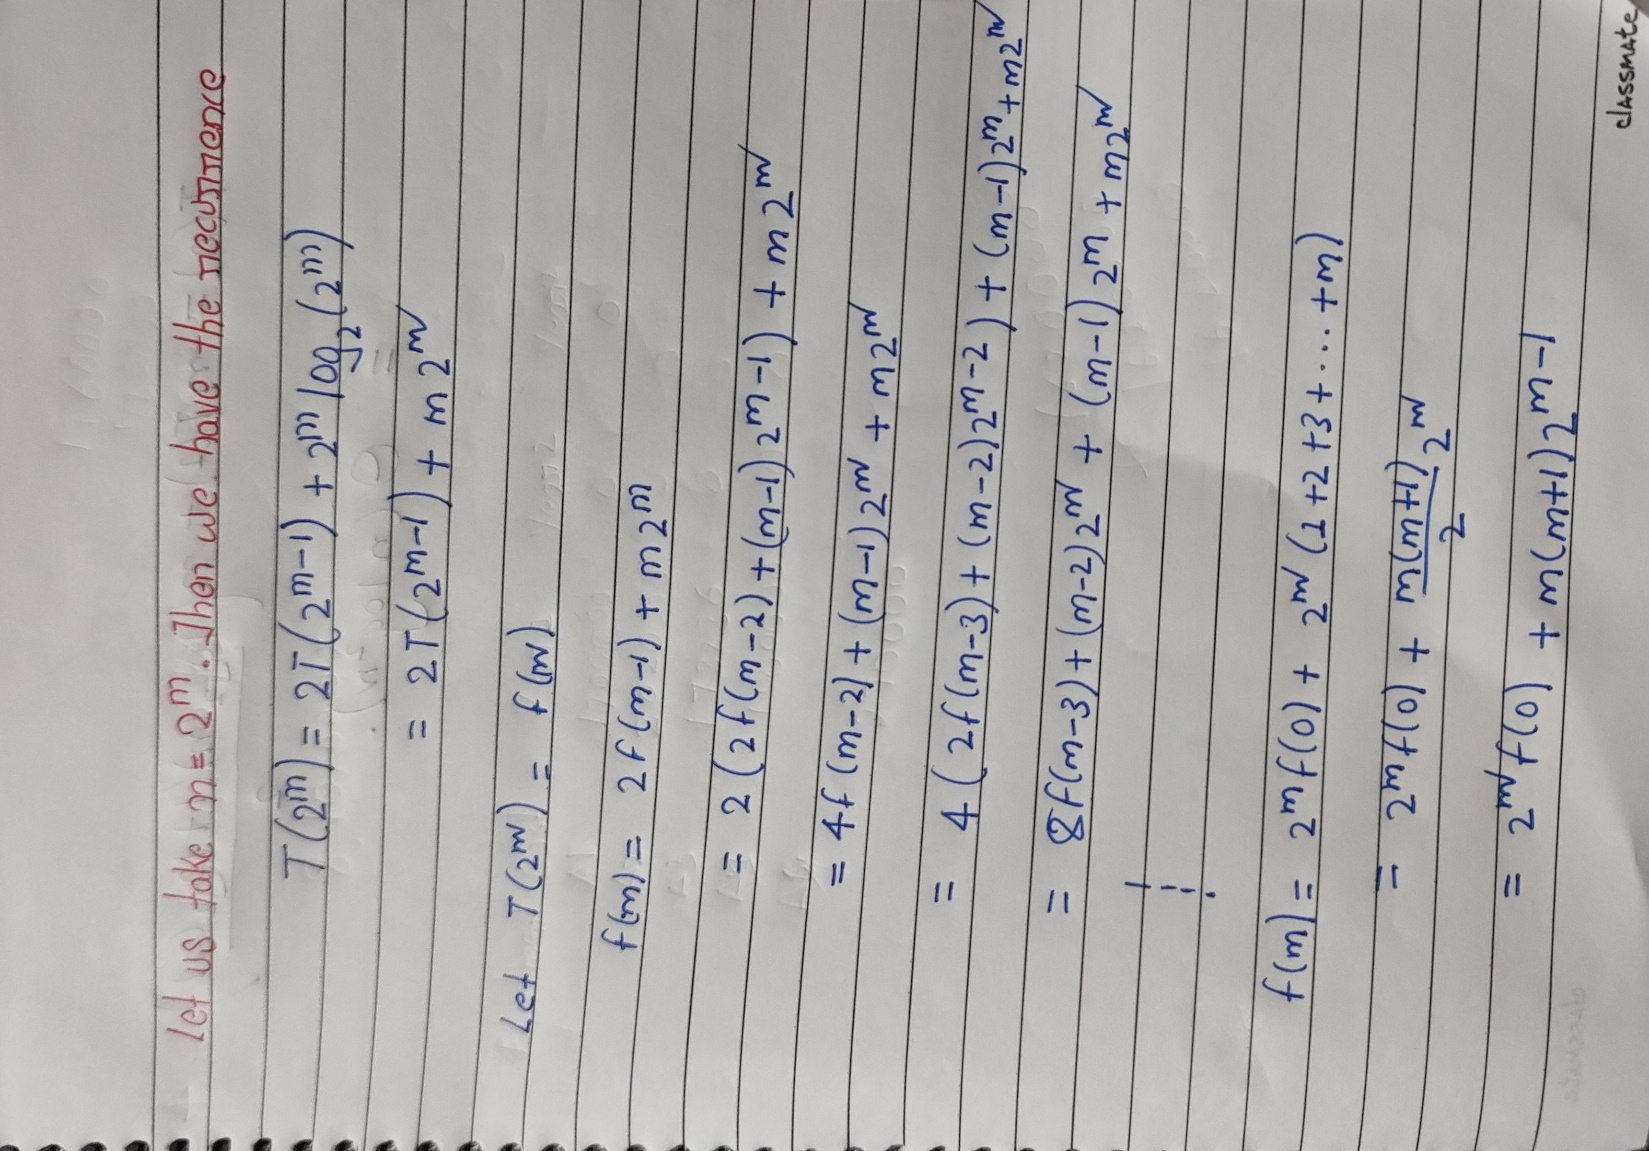 Let us take n = 2^m. Then we have the recurrence
T(2^m) = 2T(2^m-1) + 2^m log₂(2^m)
= 2T(2^m-1) + m2^m
Let T(2^m) = f(m)
f(m) = 2f(m-1) + m2^m
= 2(2f(m-2) + (m-1)2^m-1) + m2^m
= 4f(m-2) + (m-1)2^m + m2^m
= 4(2f(m-3) + (m-2)2^m-2) + (m-1)2^m + m2^m
= 8f(m-3) + (m-2)2^m + (m-1)2^m + m2^m
f(m) = 2^m f(0) + 2^m (1+2+3+....+m)
= 2^m f(0) + m(m+1)/2 2^m
= 2^m f(0) + m(m+1)2^m-1
classmate